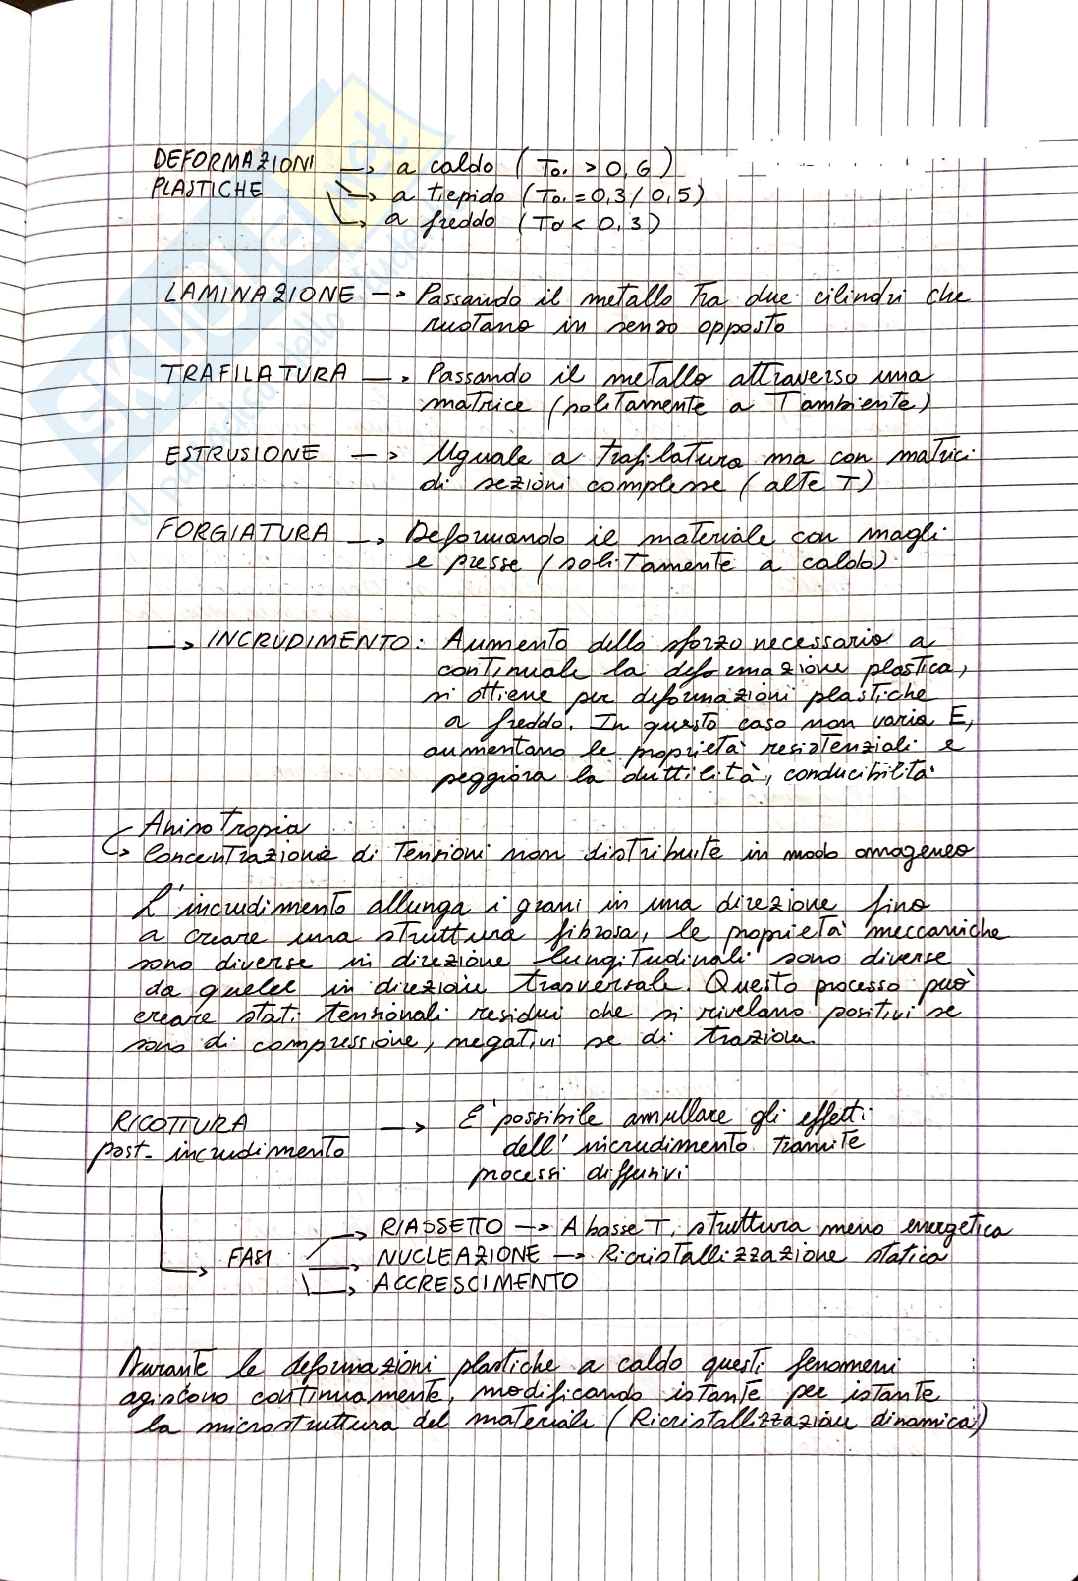 DEFORMAZIONI → a caldo (To. > 0,6)
PLASTICHE → a tiepido (To. = 0,3/0,5)
→ a freddo (To < 0,3)
LAMINAZIONE → Passando il metallo tra due cilindri che
ruotano in senso opposto
TRAFILATURA → Passando il metallo attraverso una
matrice (solitamente a T ambiente)
ESTRUSIONE → Uguale a trafilatura ma con matrici
di sezioni complesse (alte T)
FORGIATURA → Deformando il materiale con magli
e presse (solitamente a caldo)
→ INCRUDIMENTO: Aumento dello sforzo necessario a
continuale la deformazione plastica,
si ottiene per deformazioni plastiche
a freddo. In questo caso non varia E,
aumentano le proprietà resistenziali e
peggiora la duttilità, conducibilità
Anisotropia
→ Concentrazione di tensioni non distribuite in modo omogeneo
L'incrudimento allunga i grani in una direzione fino
a creare una struttura fibrosa, le proprietà meccaniche
sono diverse in direzione lungitudinali sono diverse
da quelle in direzione trasversale. Questo processo può
creare stati tensionali residui che si rivelano positivi se
sono di compressione, negativi se di trazione.
RICOTTURA → E' possibile annullare gli effetti
post-incrudimento dell'incrudimento tramite
processi diffusivi
→ RIASSETTO → A basse T, struttura meno energetica
→ FASI → NUCLEAZIONE → Ricristallizzazione statica
→ ACCRESCIMENTO
Durante le deformazioni plastiche a caldo questi fenomeni
agiscono continuamente, modificando istante per istante
la microstruttura del materiale (Ricristallizzazione dinamica)